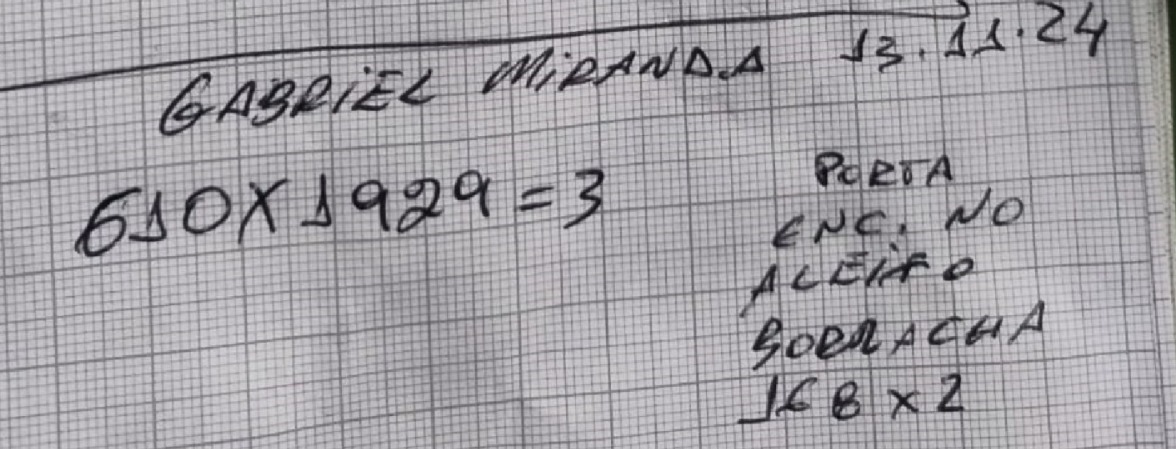 GABRIEL MIRANDA 13.11.24
610X1929=3
PORTA
ENC. NO
ALEITO
BORRACHA
168 x 2